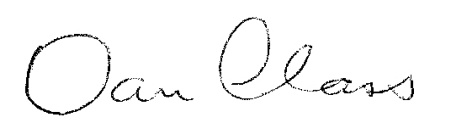 Dan Class